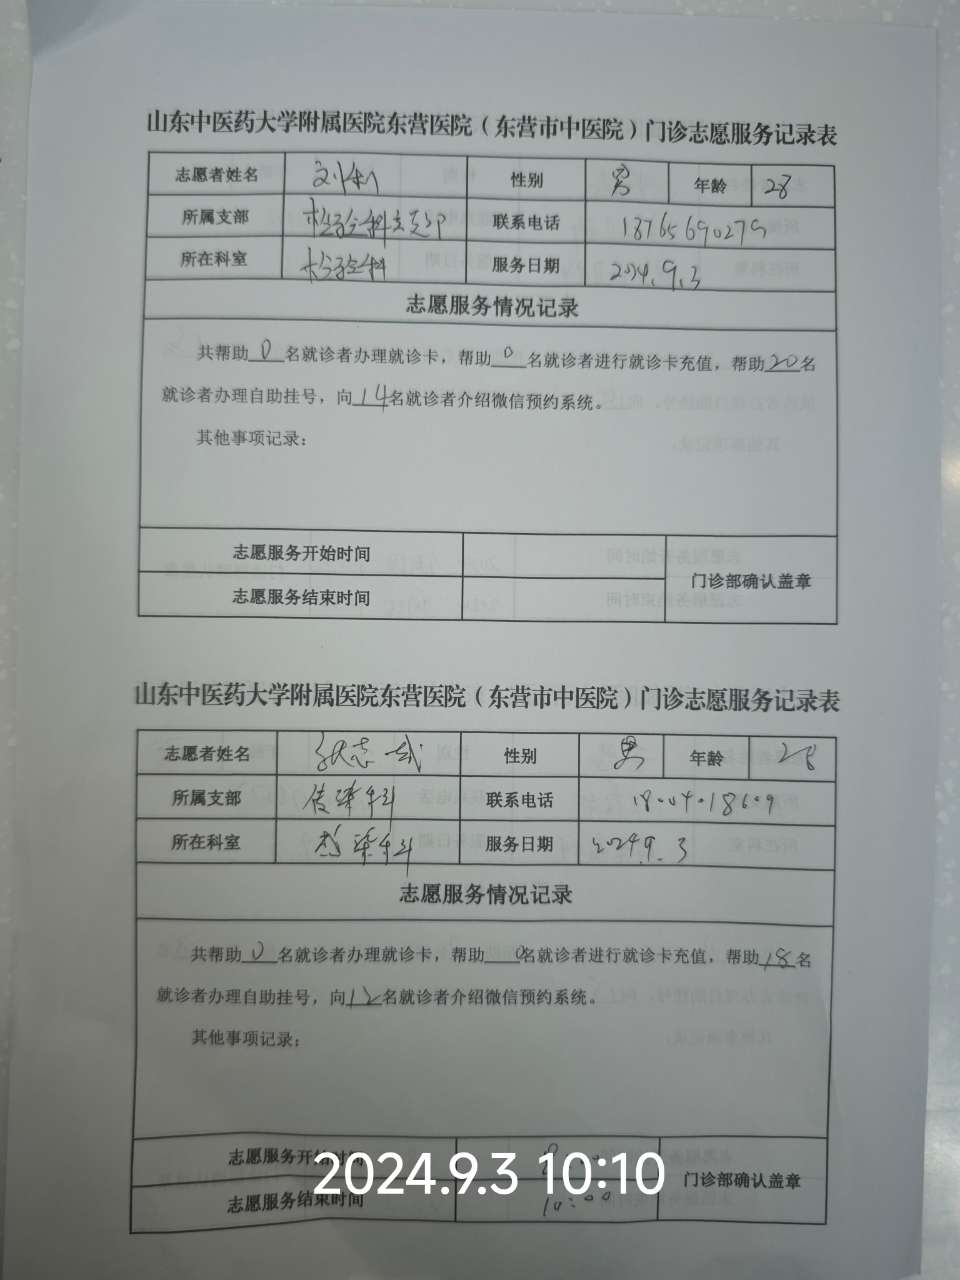 山东中医药大学附属医院东营医院（东营市中医院）门诊志愿服务记录表
志愿者姓名 刘利 性别 男 年龄 28
所属支部 检验科支部 联系电话 18765690279
所在科室 检验科 服务日期 2024.9.3
志愿服务情况记录
共帮助0名就诊者办理就诊卡，帮助0名就诊者进行就诊卡充值，帮助20名
就诊者办理自助挂号，向14名就诊者介绍微信预约系统。
其他事项记录：
志愿服务开始时间
门诊部确认盖章
志愿服务结束时间
山东中医药大学附属医院东营医院（东营市中医院）门诊志愿服务记录表
志愿者姓名 张志武 性别 男 年龄 28
所属支部 联系电话
所在科室 服务日期 2024.9.3
志愿服务情况记录
共帮助0名就诊者办理就诊卡，帮助0名就诊者进行就诊卡充值，帮助18名
就诊者办理自助挂号，向12名就诊者介绍微信预约系统。
其他事项记录：
志愿服务开始时间
2024.9.3 10:10
门诊部确认盖章
志愿服务结束时间 10:00